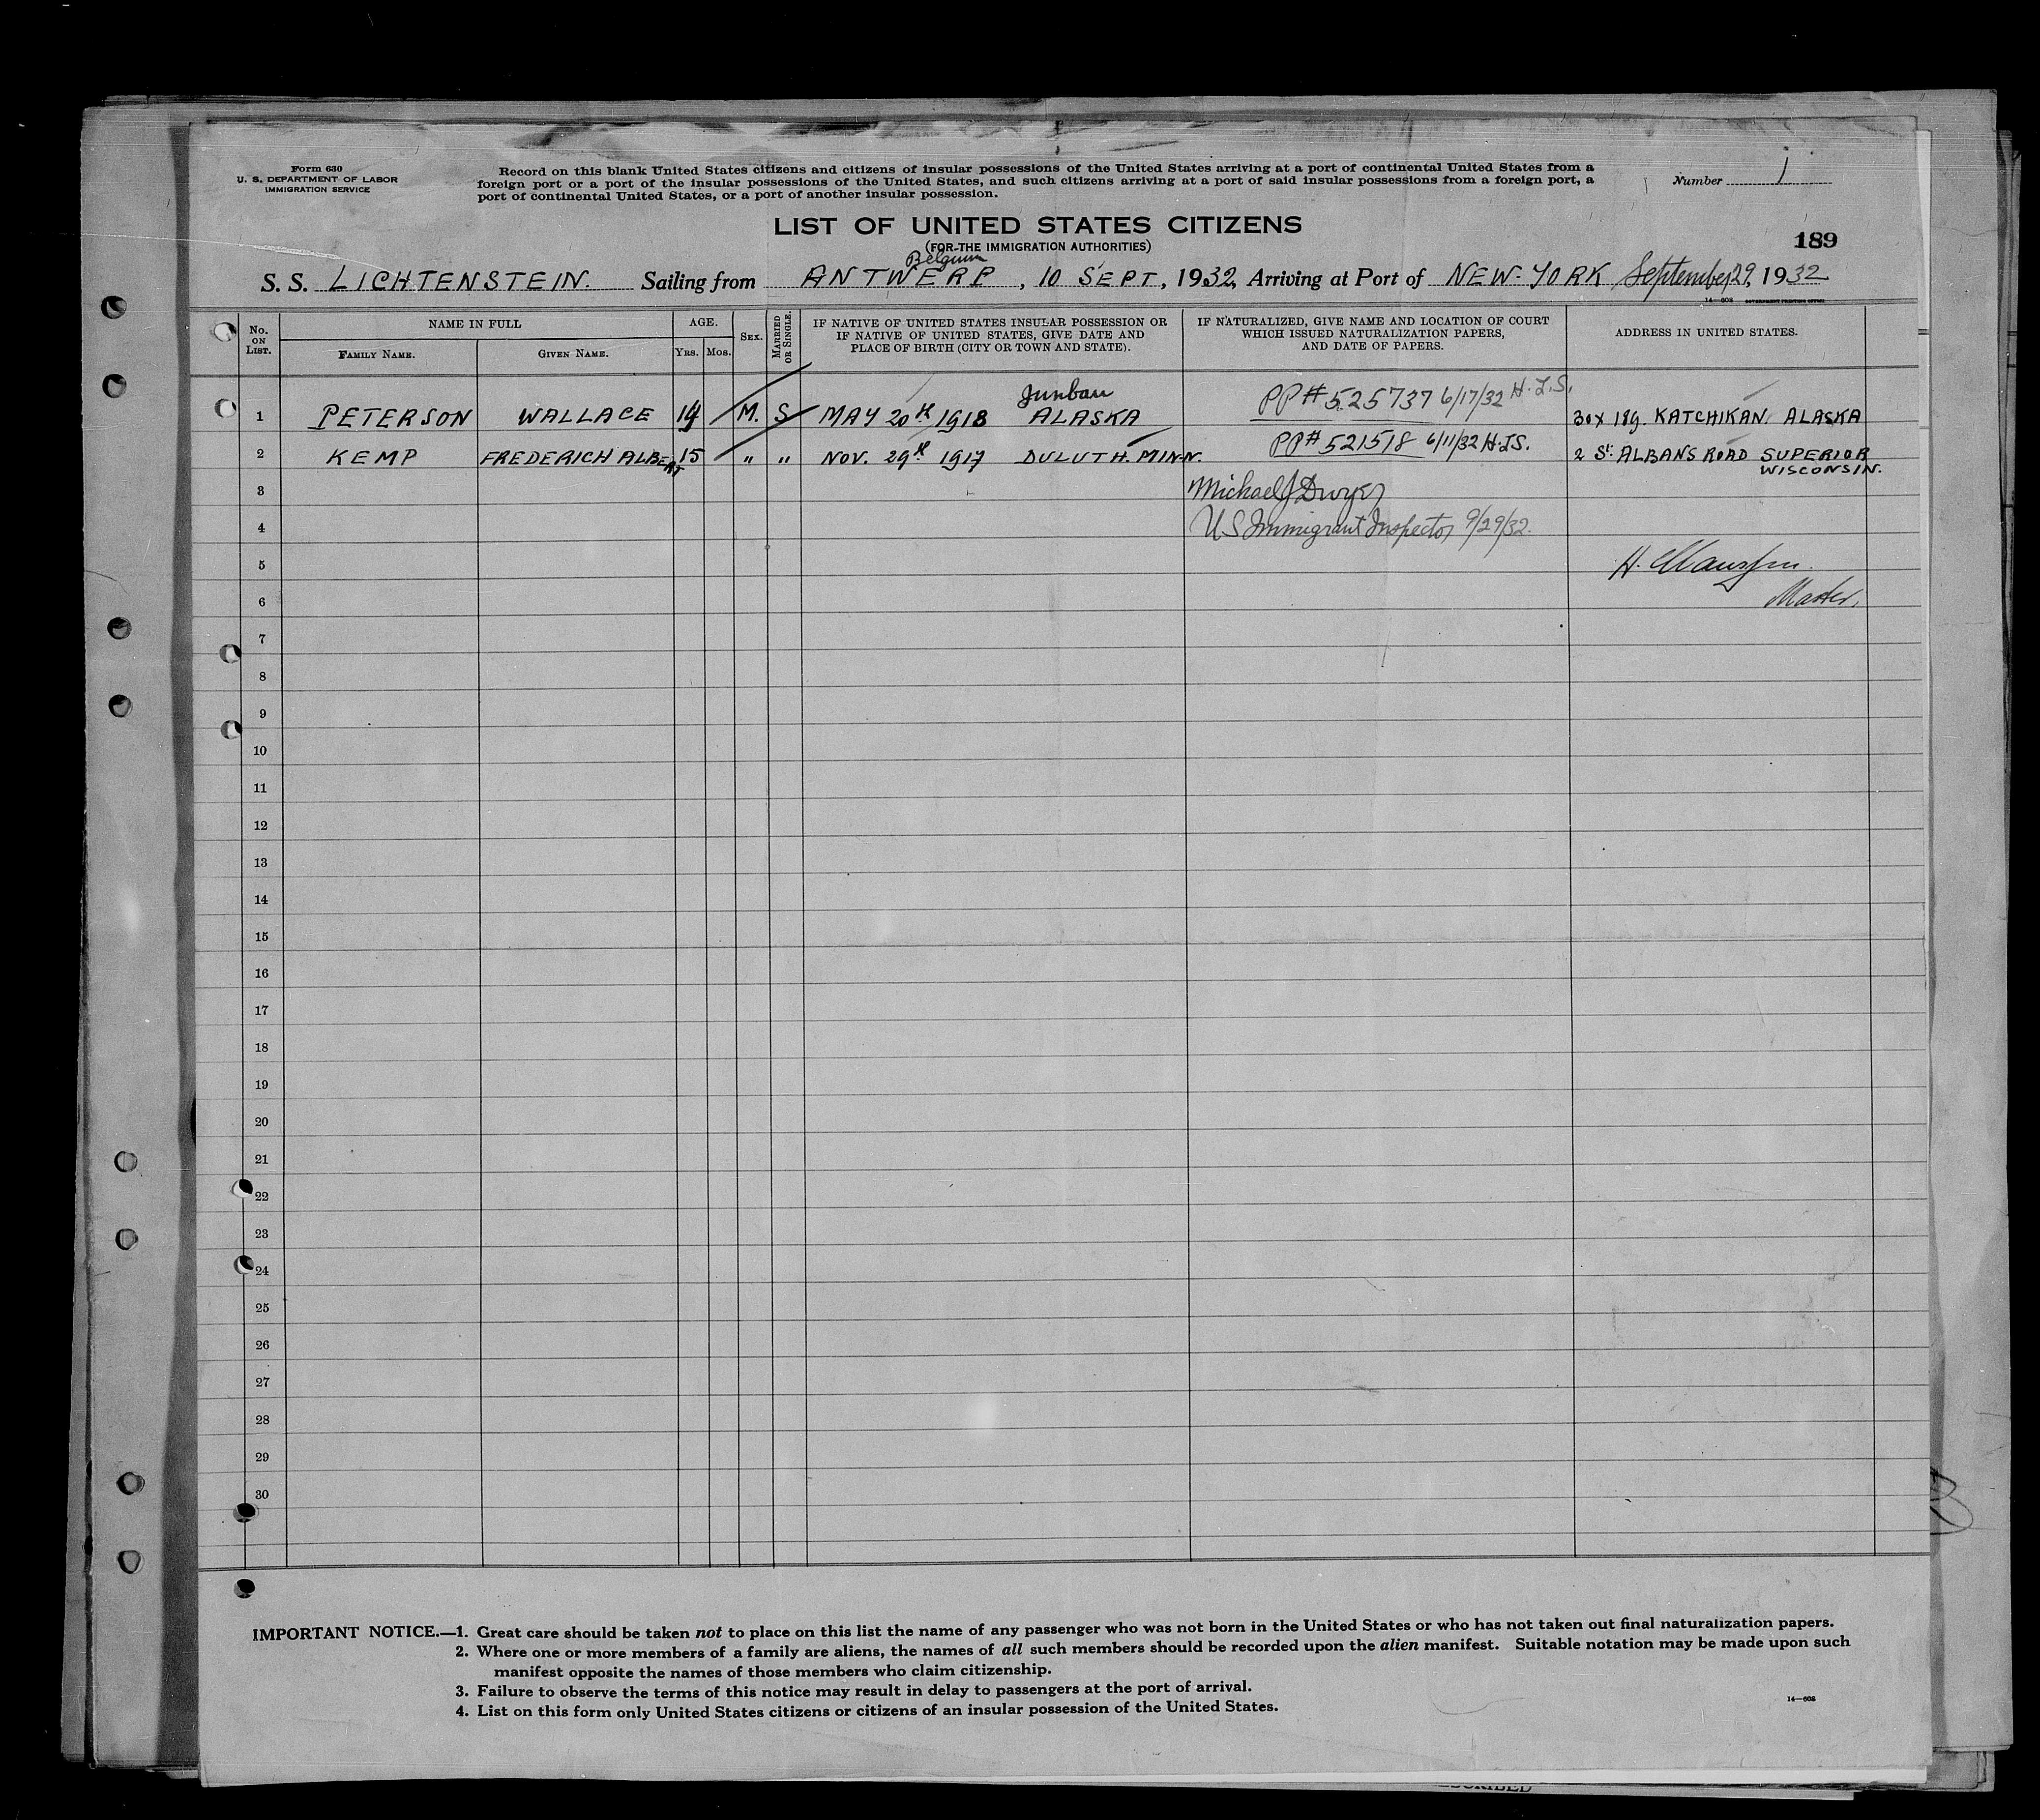 Form 630
U. S. DEPARTMENT OF LABOR
IMMIGRATION SERVICE
Record on this blank United States citizens and citizens of insular possessions of the United States arriving at a port of continental United States from a
foreign port or a port of the insular possessions of the United States, and such citizens arriving at a port of said insular possessions from a foreign port, a
port of continental United States, or a port of another insular possession.
Number 1
LIST OF UNITED STATES CITIZENS
(FOR THE IMMIGRATION AUTHORITIES)
189
Belgium
S. S. LICHTENSTEIN. Sailing from ANTWERP, 10 SEPT, 1932, Arriving at Port of NEW-YORK September 29, 1932
14—608 GOVERNMENT PRINTING OFFICE
No. ON LIST. NAME IN FULL AGE. SEX. MARRIED OR SINGLE. IF NATIVE OF UNITED STATES INSULAR POSSESSION OR IF NATIVE OF UNITED STATES, GIVE DATE AND PLACE OF BIRTH (CITY OR TOWN AND STATE). IF NATURALIZED, GIVE NAME AND LOCATION OF COURT WHICH ISSUED NATURALIZATION PAPERS, AND DATE OF PAPERS. ADDRESS IN UNITED STATES.
FAMILY NAME. GIVEN NAME. YRS. MOS.
Junbau
1 PETERSON WALLACE 14 M. S MAY 20th 1918 ALASKA PP# 525737 6/17/32 H.J.S. BOX 189. KATCHIKAN. ALASKA
2 KEMP FREDERICH ALBERT 15 " " NOV. 29th 1917 DULUTH. MINN. PP# 521518 6/11/32 H.J.S. 2 St. ALBANS ROAD SUPERIOR
WISCONSIN.
3 Michael J Dwyer
4 US Immigrant Inspector 9/29/32.
5 H.
6 Master.
7
8
9
10
11
12
13
14
15
16
17
18
19
20
21
22
23
24
25
26
27
28
29
30
IMPORTANT NOTICE.—1. Great care should be taken not to place on this list the name of any passenger who was not born in the United States or who has not taken out final naturalization papers.
2. Where one or more members of a family are aliens, the names of all such members should be recorded upon the alien manifest. Suitable notation may be made upon such
manifest opposite the names of those members who claim citizenship.
3. Failure to observe the terms of this notice may result in delay to passengers at the port of arrival.
4. List on this form only United States citizens or citizens of an insular possession of the United States.
14—608